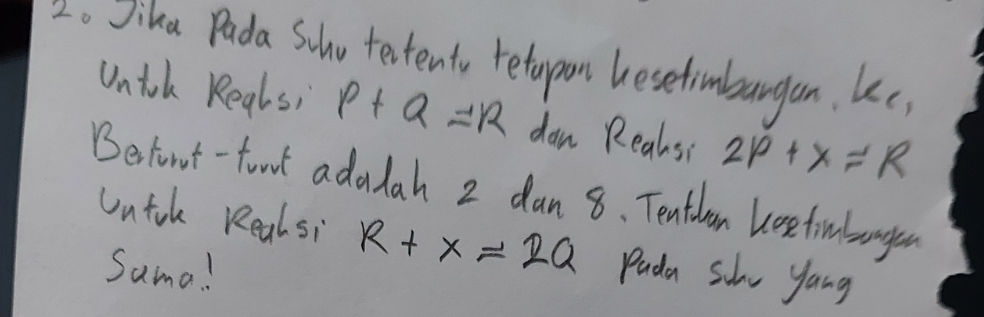 2. Jika Pada Suhu tertentu tetapan kesetimbangan, Kc,
Untuk Reaksi P + Q ⇌ R dan Reaksi 2P + X ⇌ R
Berturut-turut adalah 2 dan 8. Tentukan kesetimbangan
Untuk Reaksi R + X ⇌ 2Q Pada Suhu Yang
Sama!